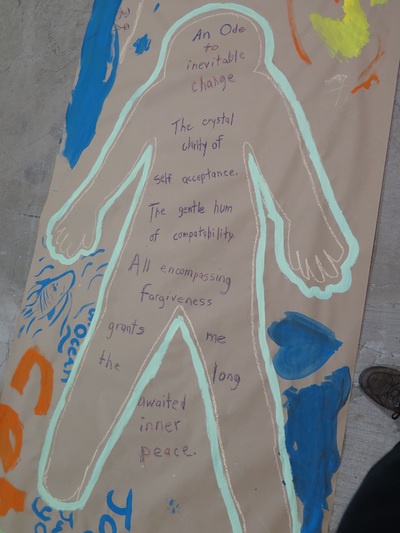 An Ode
to
inevitable
change
The crystal
clarity of
self acceptance.
The gentle hum
of compatability
All encompassing
forgiveness
grants me
the long
awaited
inner
peace.
Ocean